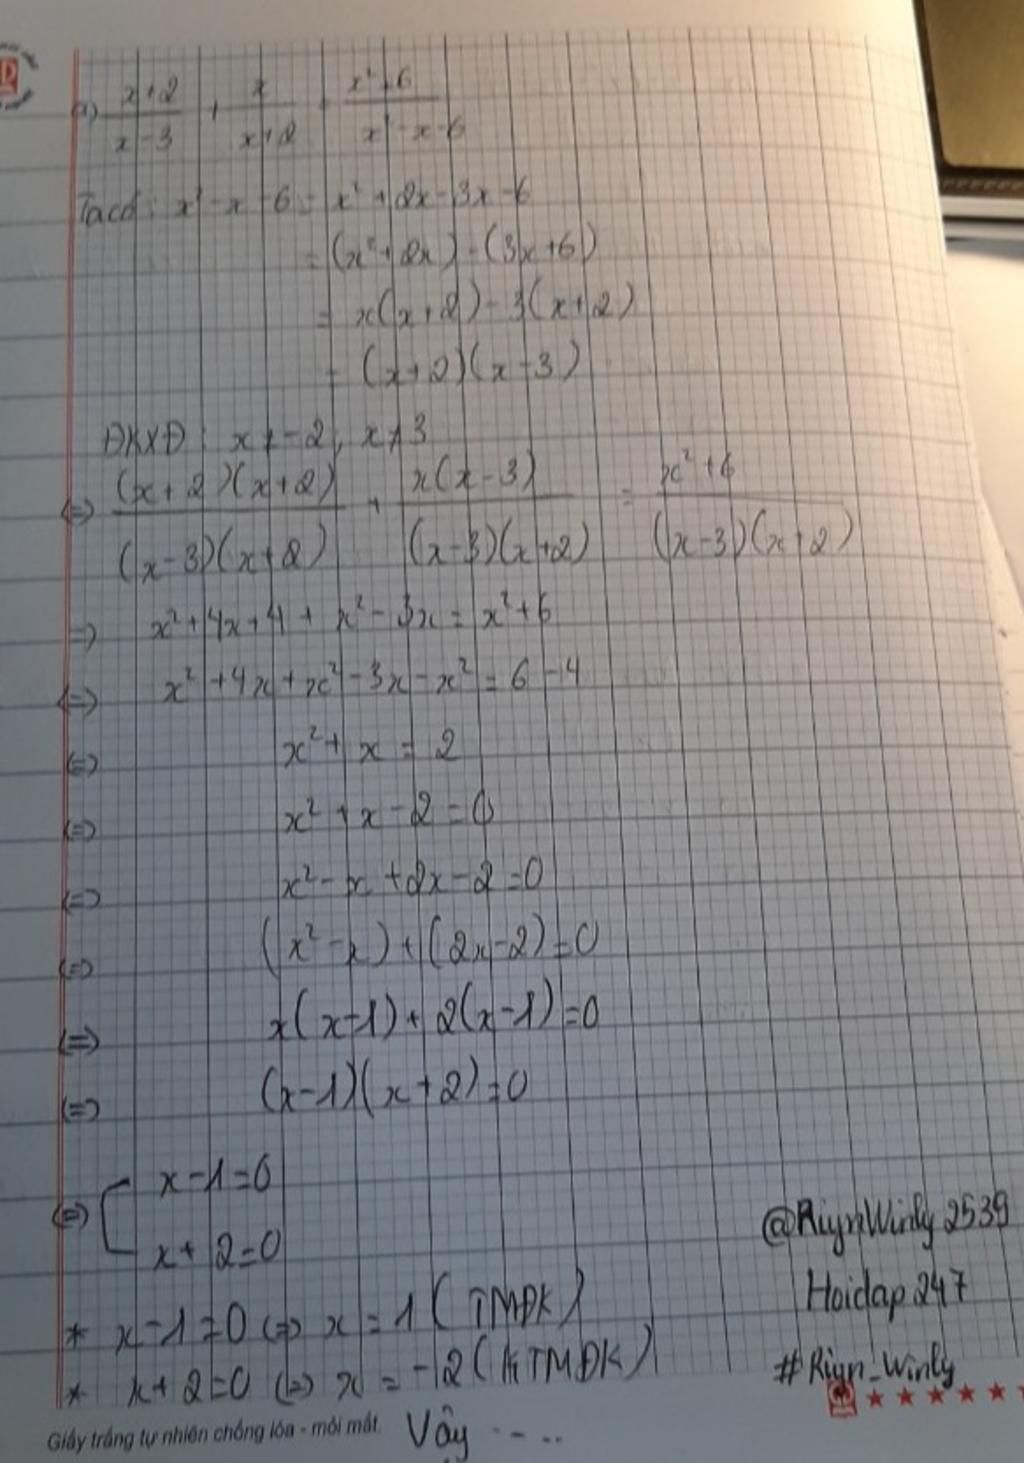 a) x+2/x-3 + x/x+2 = x²+6/x²-x-6
Ta có: x²-x-6 = x²+2x-3x-6
= (x²+2x)-(3x+6)
= x(x+2)-3(x+2)
= (x+2)(x-3)
ĐKXĐ: x≠-2, x≠3
<=> (x+2)(x+2)/(x-3)(x+2) + x(x-3)/(x-3)(x+2) = x²+6/(x-3)(x+2)
=> x²+4x+4+x²-3x=x²+6
<=> x²+4x+x²-3x-x²=6-4
<=> x²+x=2
<=> x²+x-2=0
<=> x²-x+2x-2=0
<=> (x²-x)+(2x-2)=0
<=> x(x-1)+2(x-1)=0
<=> (x-1)(x+2)=0
<=> [ x-1=0
x+2=0
* x-1=0 <=> x=1 (TMĐK)
* x+2=0 <=> x=-2 (KTMĐK)
Vậy ....
@RiynWinly2539
Hoidap247
#Riyn_Winly
Giấy trắng tự nhiên chống lóa - mỏi mắt.